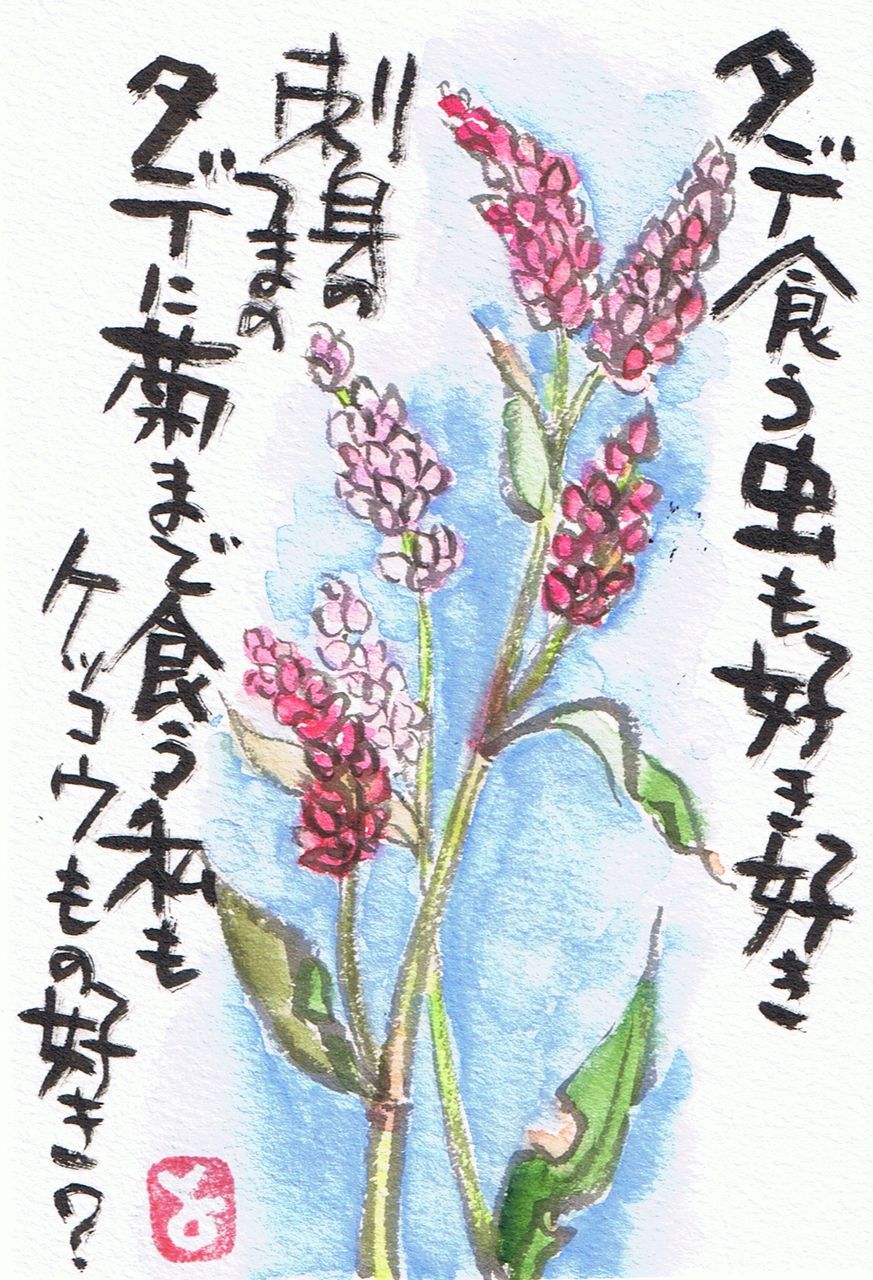 タデ食う虫も好き好き
刺身の
つまの
タデに菊まで食う私も
ケッコウもの好き?
と